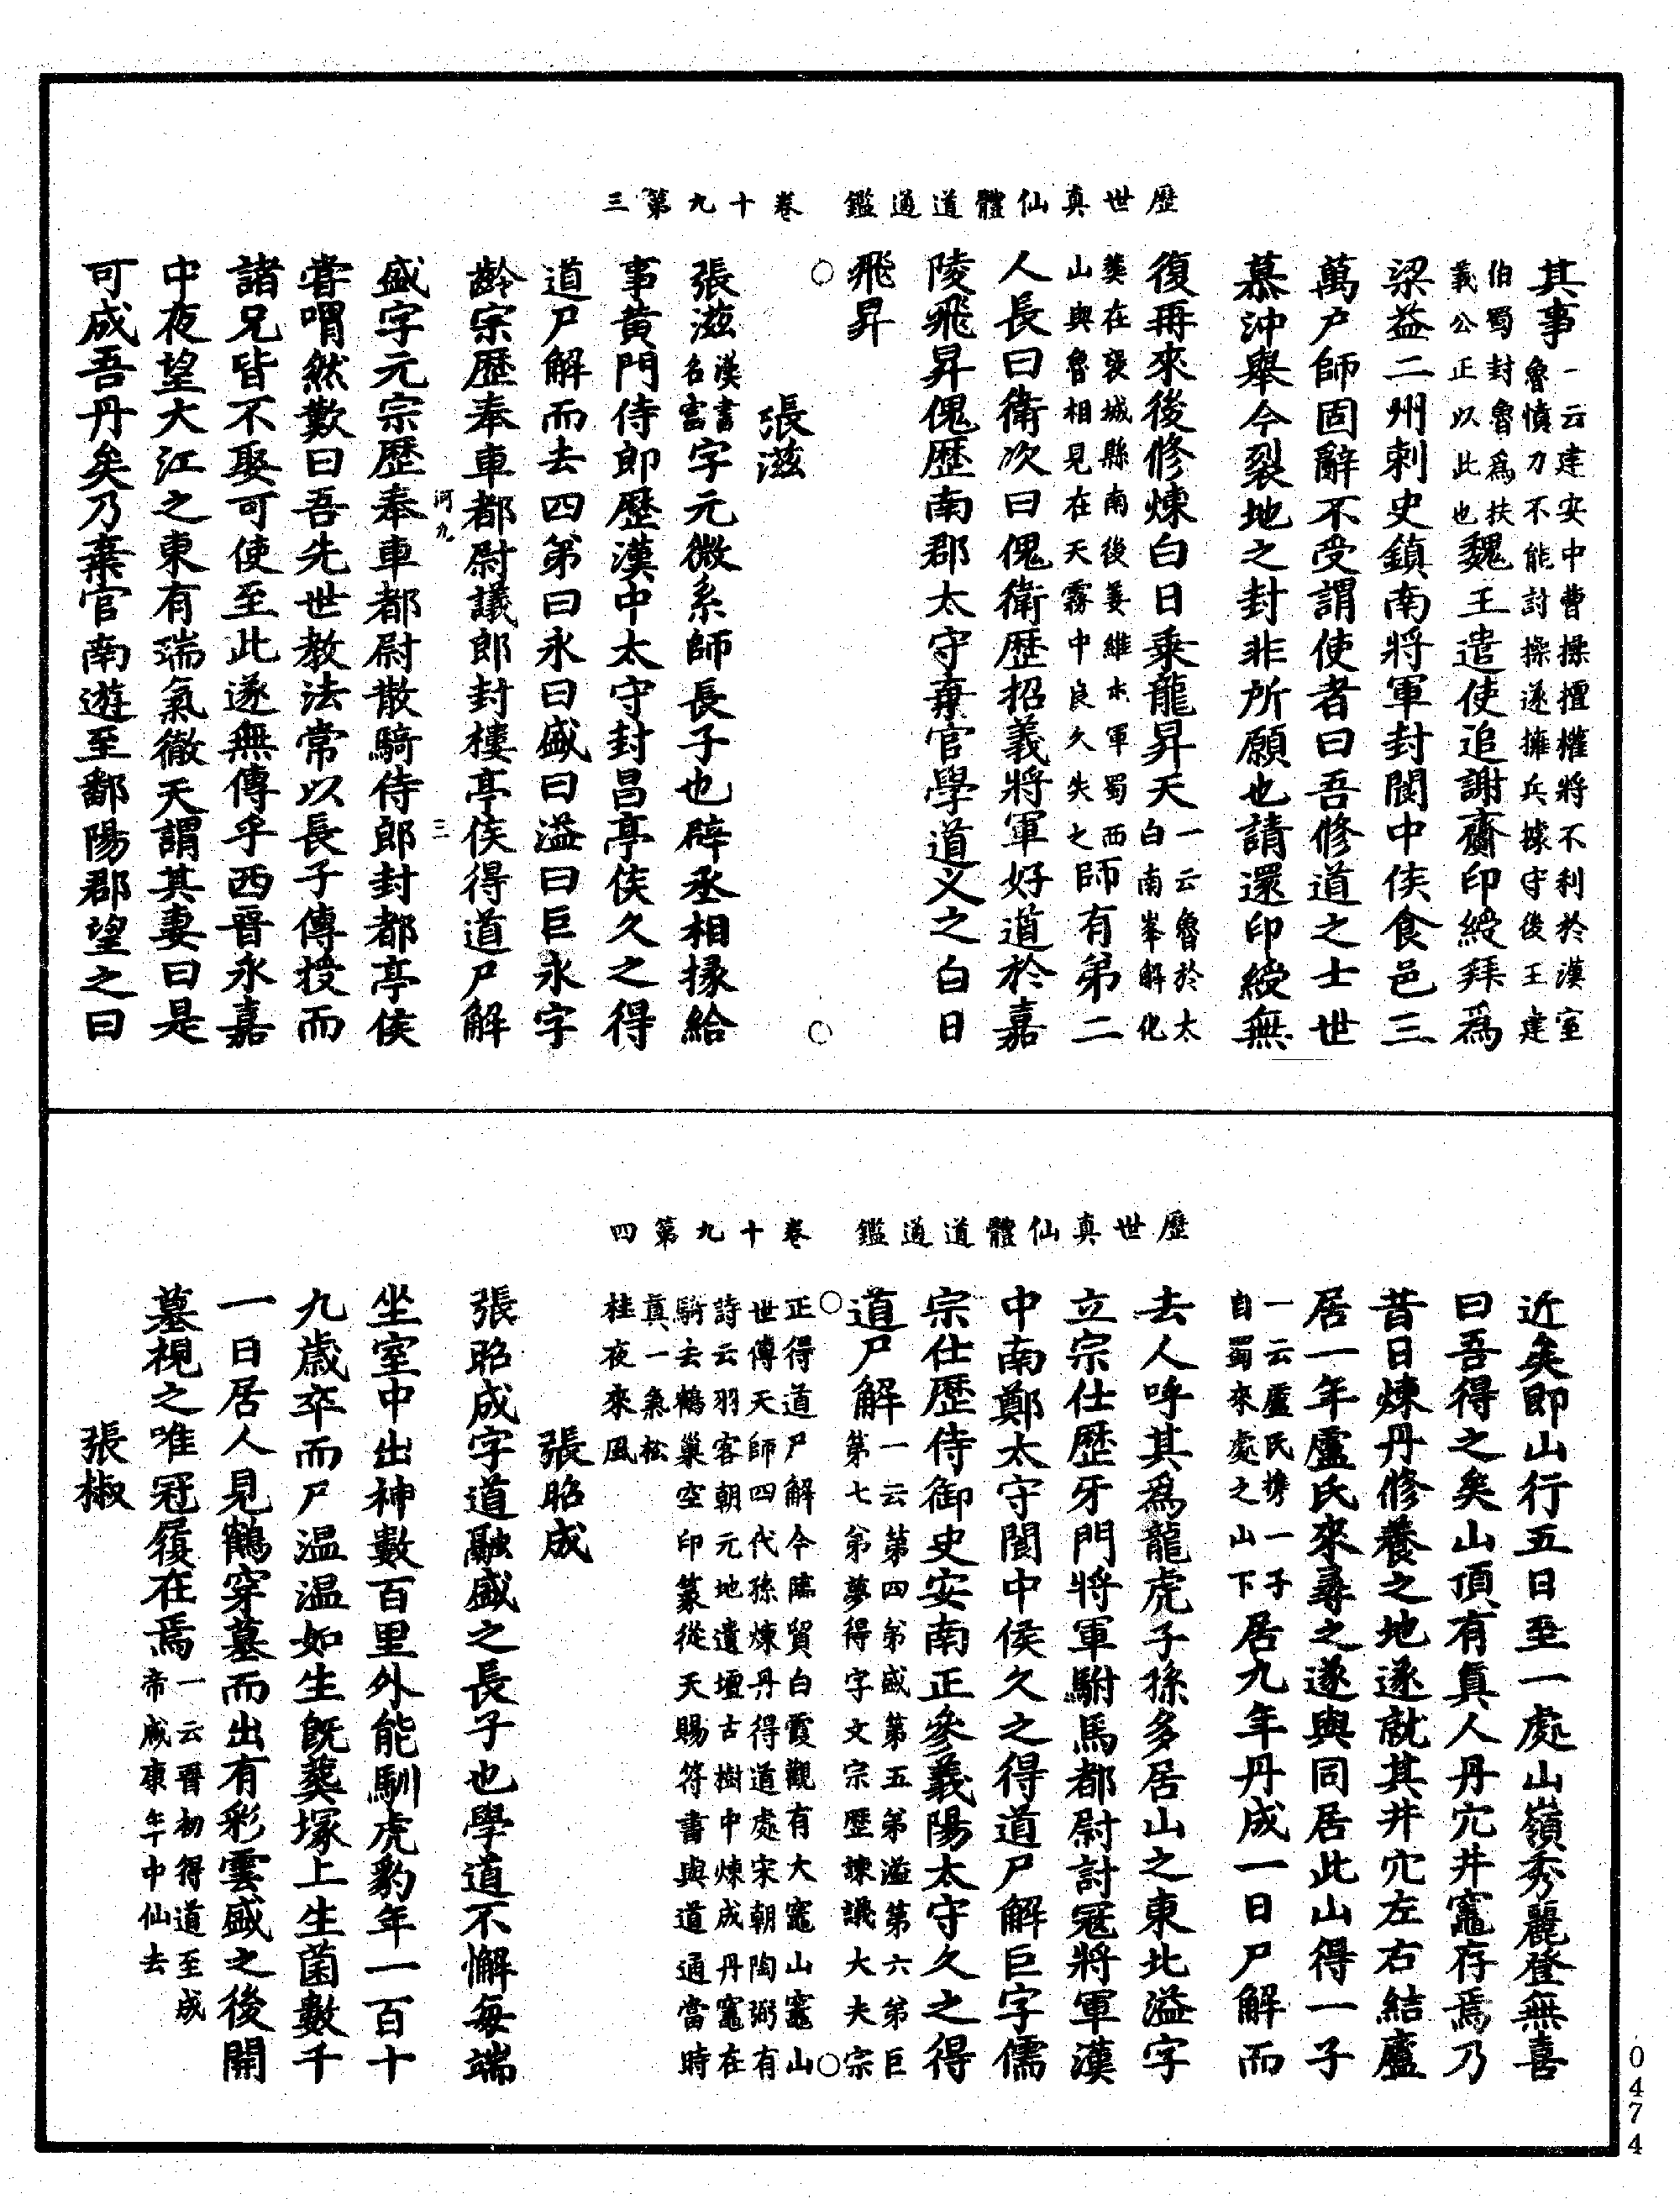 歷世真仙體道通鑑　卷十九第三
其事一云建安中曹操擅權將不利於漢室
魯憤力不能討操遂擁兵據守後王建
伯蜀封魯爲扶
義公正以此也魏王遣使追謝齎印綬拜爲
梁益二州刺史鎮南將軍封閬中侯食邑三
萬户師固辭不受謂使者曰吾修道之士世
慕沖舉今裂地之封非所願也請還印綬無
復再來後修煉白日乘龍昇天一云魯於太
白南峯解化
葬在褒城縣南後姜維木軍蜀西
山與魯相見在天霧中良久失之師有弟二
人長曰衛次曰傀衛歷招義將軍好道於嘉
陵飛昇傀歷南郡太守棄官學道义之白日
飛昇
張滋
張滋漢書
名富字元微系師長子也辟丞相掾給
事黄門侍郎歷漢中太守封昌亭侯久之得
道尸解而去四弟曰永曰盛曰溢曰巨永字
齡宗歷奉車都尉議郎封樓亭侯得道尸解
河九　三
盛字元宗歷奉車都尉散騎侍郎封都亭侯
嘗喟然歎曰吾先世教法常以長子傳授而
諸兄皆不娶可使至此遂無傳乎西晉永嘉
中夜望大江之東有瑞氣徹天謂其妻曰是
可成吾丹矣乃棄官南遊至鄱陽郡望之曰
歷世真仙體道通鑑　卷十九第四
近矣即山行五日至一處山嶺秀麗登無喜
曰吾得之矣山頂有真人丹穴井竈存焉乃
昔日煉丹修養之地遂就其井穴左右結廬
居一年盧氏來尋之遂與同居此山得一子
一云盧氏携一子
自蜀來處之山下居九年丹成一日尸解而
去人呼其爲龍虎子孫多居山之東北溢字
立宗仕歷牙門將軍駙馬都尉討冦將軍漢
中南鄭太守閬中侯久之得道尸解巨字儒
宗仕歷侍御史安南正參義陽太守久之得
道尸解一云第四弟盛第五弟溢第六弟巨
第七弟夢得字文宗歷諫議大夫宗
正得道尸解今臨貿白霞觀有大竈山竈山
世傳天師四代孫煉丹得道處宋朝陶弼有
詩云羽客朝元地遺壇古樹中煉成丹竈在
騎去鶴巢空印篆從天賜符書與道通當時
真一氣松
桂夜來風
張昭成
張昭成字道融盛之長子也學道不懈每端
坐室中出神數百里外能馴虎豹年一百十
九歲卒而尸温温如生既葬塚上生菌數千
一日居人見鶴穿墓而出有彩雲盛之後開
墓視之唯冠履在焉一云晉初得道至成
帝咸康年中仙去
張椒
0474